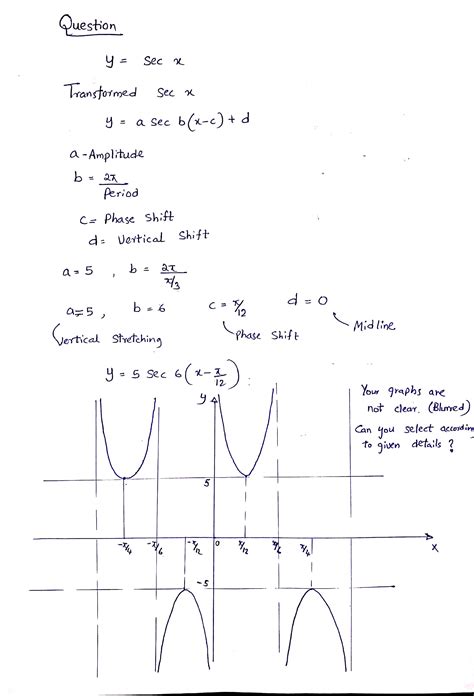 Question
y = sec x
Transformed sec x
y = a sec b(x-c) + d
a - Amplitude
b = 2π/Period
c = Phase Shift
d = Vertical Shift
a = 5 , b = 2π/π/3
a = 5 , b = 6 c = π/12 d = 0
Vertical Stretching Phase Shift Midline
y = 5 sec 6(x - π/12) :
Your graphs are
not clear. (Blurred)
Can you select according
to given details ?
y
5
-π/4 -π/6 -π/12 0 π/12 π/6 π/4 x
-5